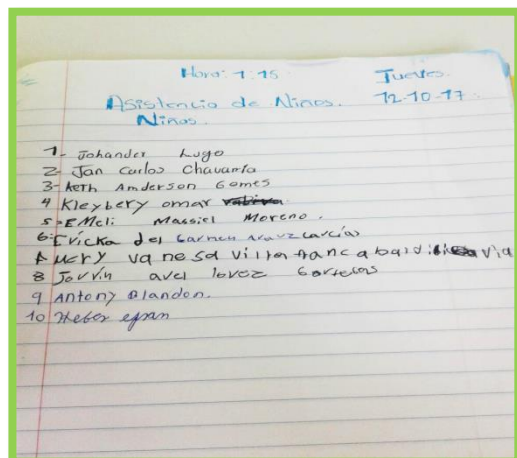 Hora: 1:15 Jueves.
Asistencia de Niños. 12-10-17.
Niños.
1- Johander Lugo
2- Jan Carlos Chavarría
3- Keth Amderson Gomes
4 Kleybery omar
5- EMeli Massiel Moreno.
6- Ericka del Carmen Arauz Garcías
Mery vanesa
8 Jorvin avel lovez
9 Antony Blandon.
10 Heber efran